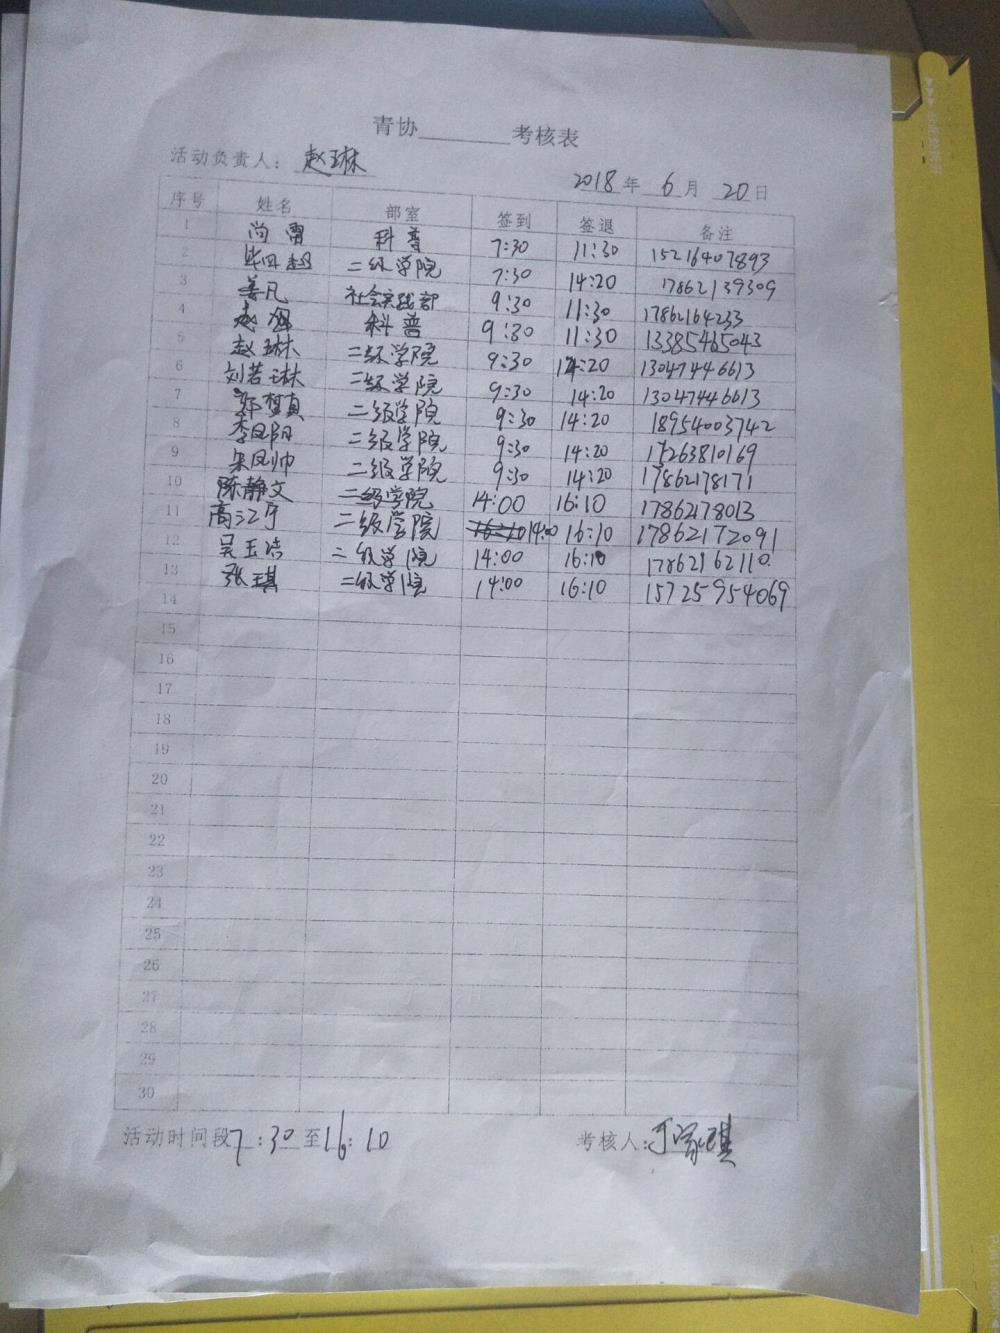 青协________考核表
活动负责人：赵琳
2018年 6月 20日
序号 姓名 部室 签到 签退 备注
1 尚雷 科普 7:30 11:30 15216407893
2 毕四超 二级学院 7:30 14:20 17862139309
3 姜凡 社会实践部 9:30 11:30 17862164233
4 赵 科普 9:30 11:30 13385465043
5 赵琳 二级学院 9:30 14:20 13047446613
6 刘若琳 二级学院 9:30 14:20 13047446613
7 郑梦真 二级学院 9:30 14:20 18954003742
8 李凤阳 二级学院 9:30 14:20 15263810169
9 朱凤帅 二级学院 9:30 14:20 17862178171
10 陈静文 二级学院 14:00 16:10 17862178013
11 高江 二级学院 14:00 16:10 17862172091
12 吴玉洁 二级学院 14:00 16:10 17862162110
13 张琪 二级学院 14:00 16:10 15725954069
14
15
16
17
18
19
20
21
22
23
24
25
26
27
28
29
30
活动时间段7:30至16:10
考核人：于家琪